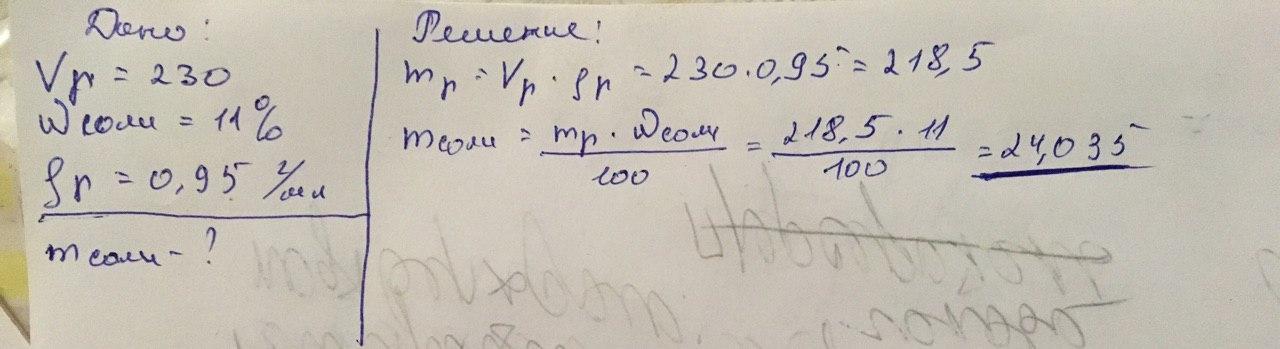 Дано:
Vр = 230
Wсоли = 11%
ρр = 0,95 г/мл
mсоли - ?
Решение:
mр = Vр · ρр = 230 · 0,95 = 218,5
mсоли = mр · Wсоли / 100 = 218,5 · 11 / 100 = 24,035